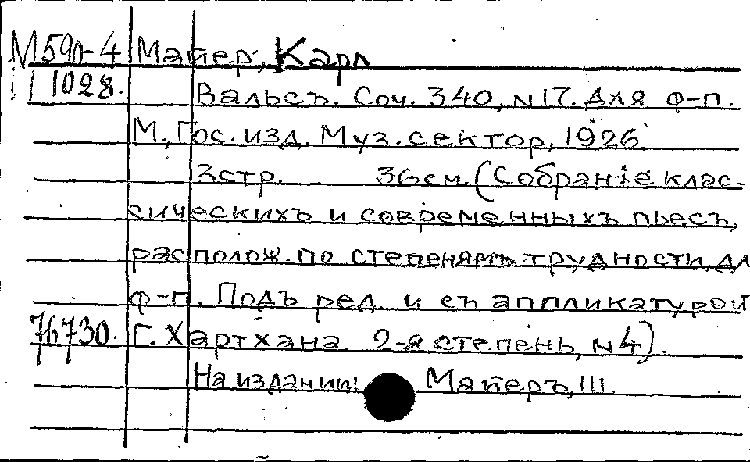 М59п-4 Майер, Карл
1028. Вальсъ. Соч. 340, №17. Для ф-п.
М., Гос. изд. Муз. сектор, 1926.
3стр. 36см. (Собраніе клас-
сическихъ и современныхъ пьесъ,
располож. по степенямъ трудности, дл
ф-п. Подъ ред. и съ аппликатурой
76730. Г. Хартхана 2-я степень, №4).
На издании: Майеръ, Ш.